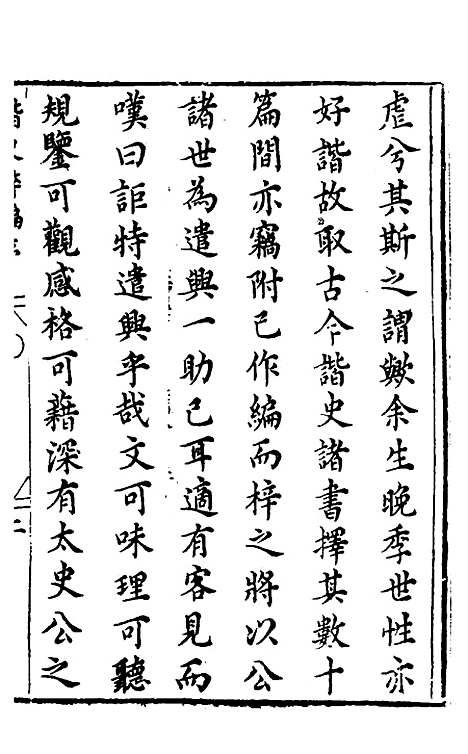 虐兮其斯之謂歟余生晚季世性亦
好諧故取古今諧史諸書擇其數十
篇間亦竊附己作編而梓之將以公
諸世為遣興一助已耳適有客見而
嘆曰詎特遣興乎哉文可味理可聽
規鑒可觀感格可藉深有太史公之